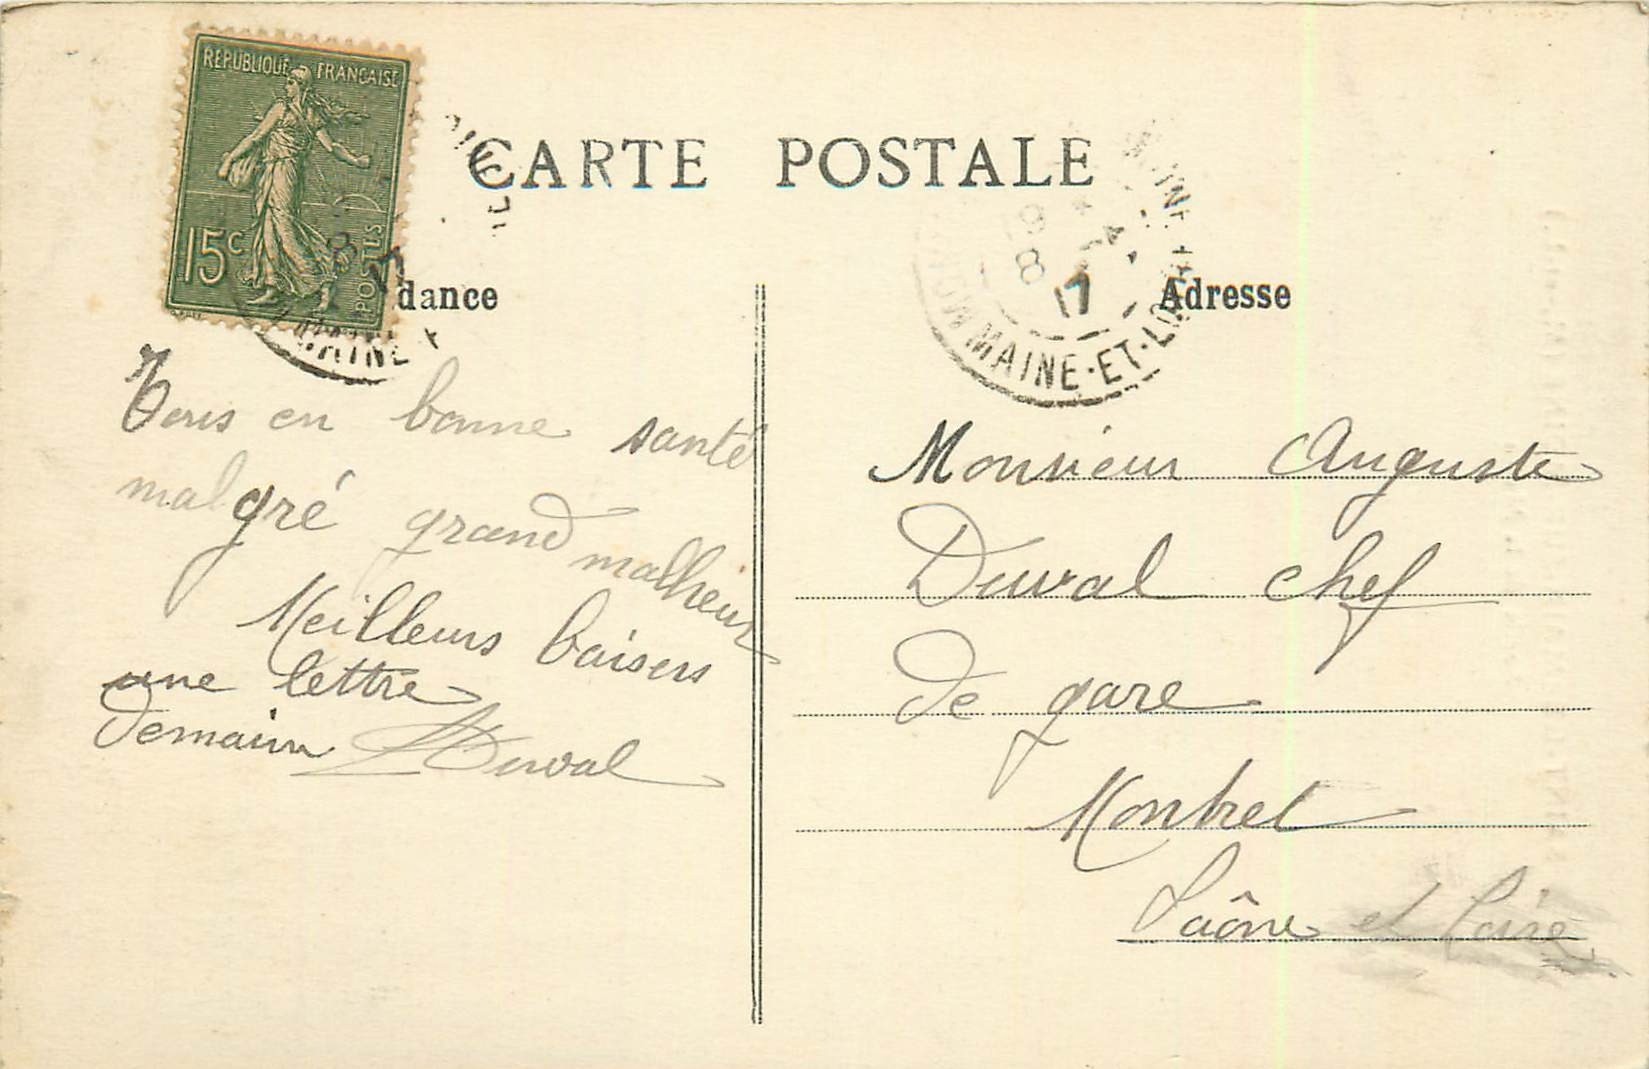 REPUBLIQUE FRANÇAISE
15c
POSTES
CARTE POSTALE
dance
Adresse
MAINE-ET-LOIRE
8
17
Tous en bonne santé
malgré grand malheur
Meilleurs baisers
une lettre
demain Duval
Monsieur Auguste
Duval chef
de gare
Montret
Saône et Loire